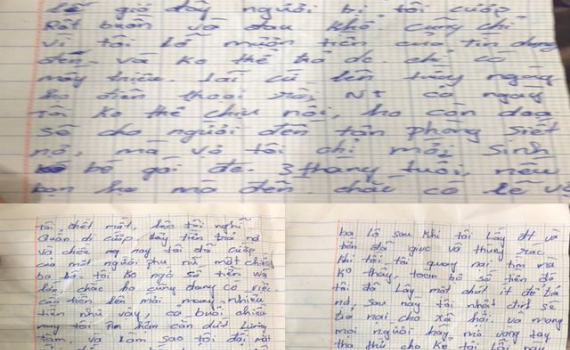 giờ đây người bị tôi cướp
Rất buồn và đau khổ. cũng chỉ
vì tôi lỡ mượn tiền của tín dụng
đen. và ko thể trả dc. chỉ có
mấy triệu. lãi cứ lên từng ngày
họ điện thoại
tôi ko thể chịu nổi, họ còn doạ
sẽ cho người đến tận phòng siết
nợ, mà vợ tôi chỉ mới sinh
bé gái đc 3 tháng tuổi, nếu
bọn họ mà đến chắc có lẽ vợ
tôi chết mất, nên tôi nghĩ
Quẩn đi cướp, lấy tiền trả nợ
và chiều nay tôi đã cướp
của một người phụ nữ một chiếc
ba lô tôi ko ngờ số tiền
chắc họ cũng đang có việc
cần tiền lên mới mang nhiều
tiền như vậy, cả buổi chiều
nay tôi ăn năn cắn dứt lương
tâm, và làm sao tôi đối mặt
ba lô sau khi tôi lấy đt và
tiền đã giục và thùng rác.
khi tôi tôi quay lại tìm mà
ko thấy, toàn bộ số tiền đó
tôi đã lấy một chút ít để trả
nợ, sau này tôi nhất định sẽ
trả mai cho xã hội, và mong
mọi người hãy mở vòng tay
tha thứ cho kẻ tội lỗi này